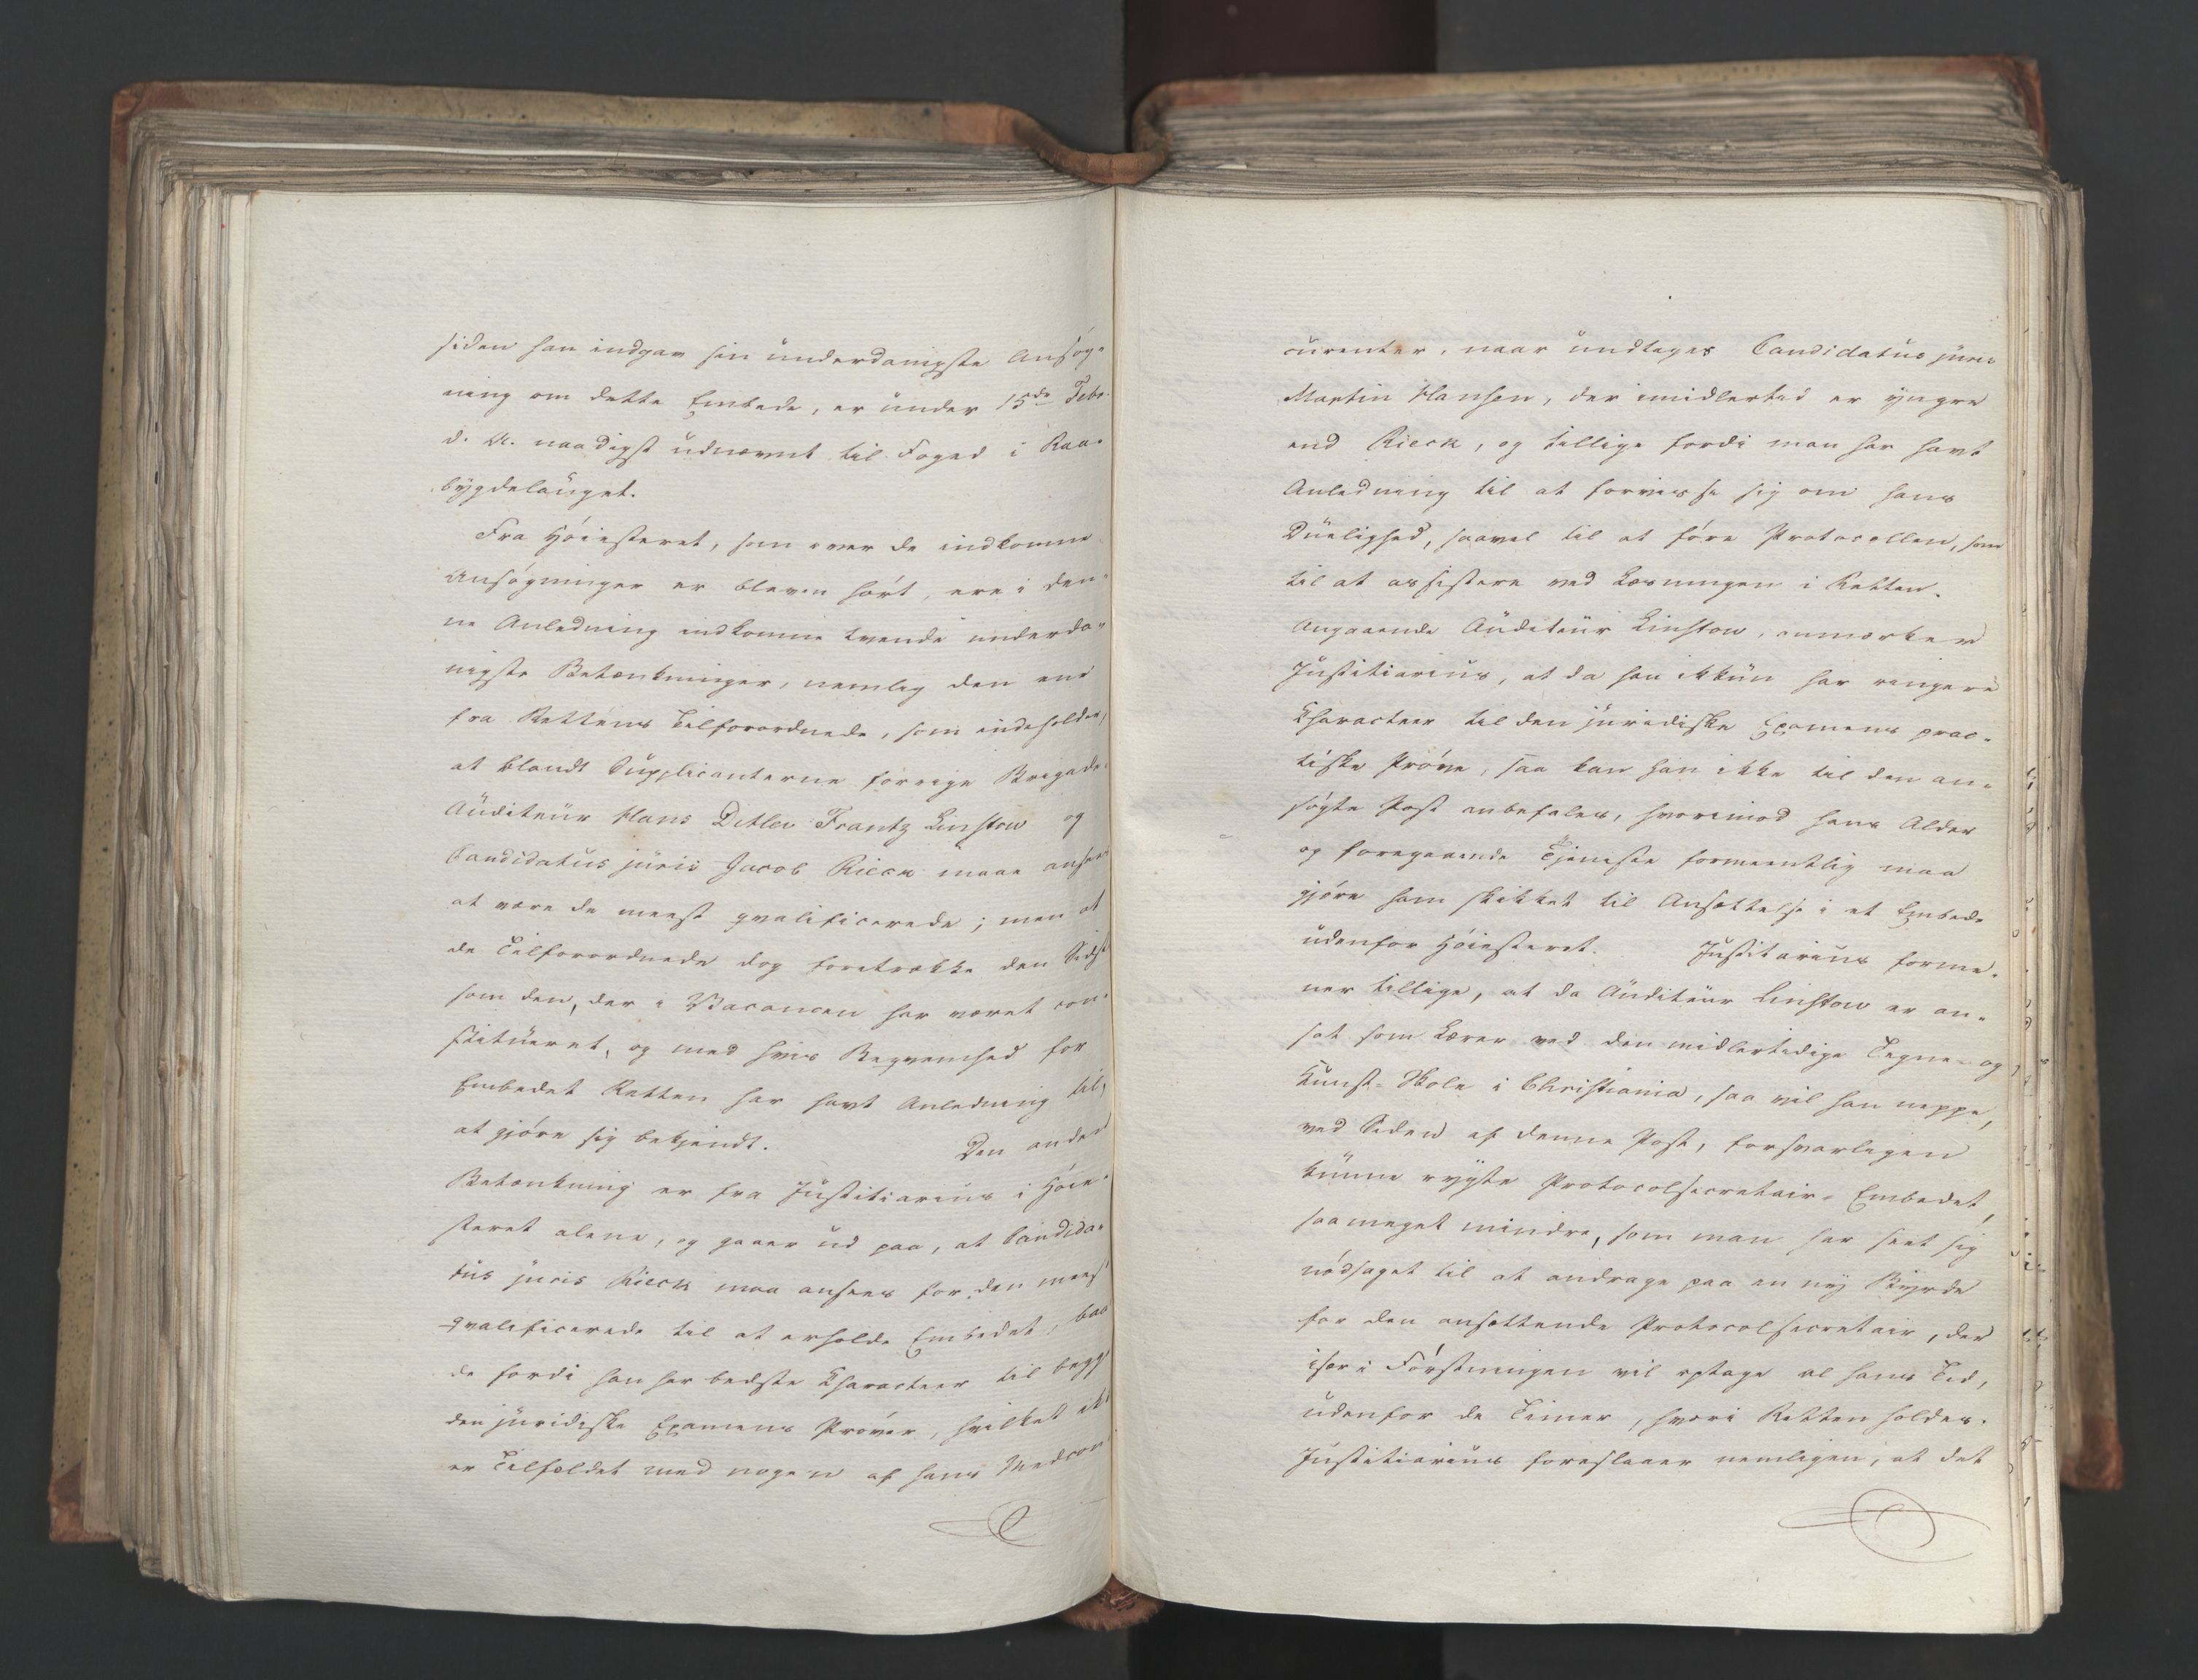 siden han indgav sin underdanigste Ansøg-
ning om dette Embede, er under 15de Febr.
d. A. naadigst udnævnt til Foged i Raa-
bygdelauget.
Fra Høiesteret, som over de indkomne
Ansøgninger er bleven hørt, ere i den-
ne Anledning indkomne tvende underda-
nigste Betænkninger, nemlig den ene
fra Rettens Tilforordnede, som indeholder,
at blandt Supplicanterne forrige Brigade-
Auditeur Hans Ditlev Frantz Linstow og
Candidatus juris Jacob Rieck maae ansees
at være de meest qvalificerede; men at
de Tilforordnede dog foretrække den Sidst
som den, der i Vacancen har været con-
stitueret, og med hvis Beqvemhed for
Embedet Retten har havt Anledning til,
at gjøre sig bekjendt. Den anden
Betænkning er fra Justitiarius i Høie-
steret alene, og gaaer ud paa, at Candida-
tus juris Rieck maa ansees for den meest
qvalificerede til at erholde Embedet, baa
de fordi han har bedste Characteer til begge
den juridiske Examens Prøver, hvilket ikke
er Tilfældet med nogen af hans Medcon-
curenter, naar undtages Candidatus juris
Martin Hansen, der imidlertid er yngre
end Rieck, og tillige fordi man har havt
Anledning til at forvisse sig om hans
Duelighed, saavel til at føre Protocollen, som
til at assistere ved Læsningen i Retten.
Angaaende Auditeur Linstow, anmærker
Justitiarius, at da han ikkun har ringere
Characteer til den juridiske Examens prac-
tiske Prøve, saa kan han ikke til den an-
søgte Post anbefales, hvorimod hans Alder
og foregaaende Tjeneste formeentlig maa
gjøre ham skikket til Ansættelse i et Embede
udenfor Høiesteret. Justitiarius forme-
ner tillige, at da Auditeur Linstow er an-
sat som Lærer ved den midlertidige Tegne- og
Kunst-Skole i Christiania, saa vil han neppe,
ved Siden af denne Post, forsvarligen
kunne røgte Protocolsecretair-Embedet,
saameget mindre, som man har seet sig
nødsaget til at andrage paa en ny Byrde
for den ansættende Protocolsecretair, der
især i Førstningen vil optage al hans Tid,
udenfor de Timer, hvori Retten holdes.
Justitiarius foreslaaer nemligen, at det